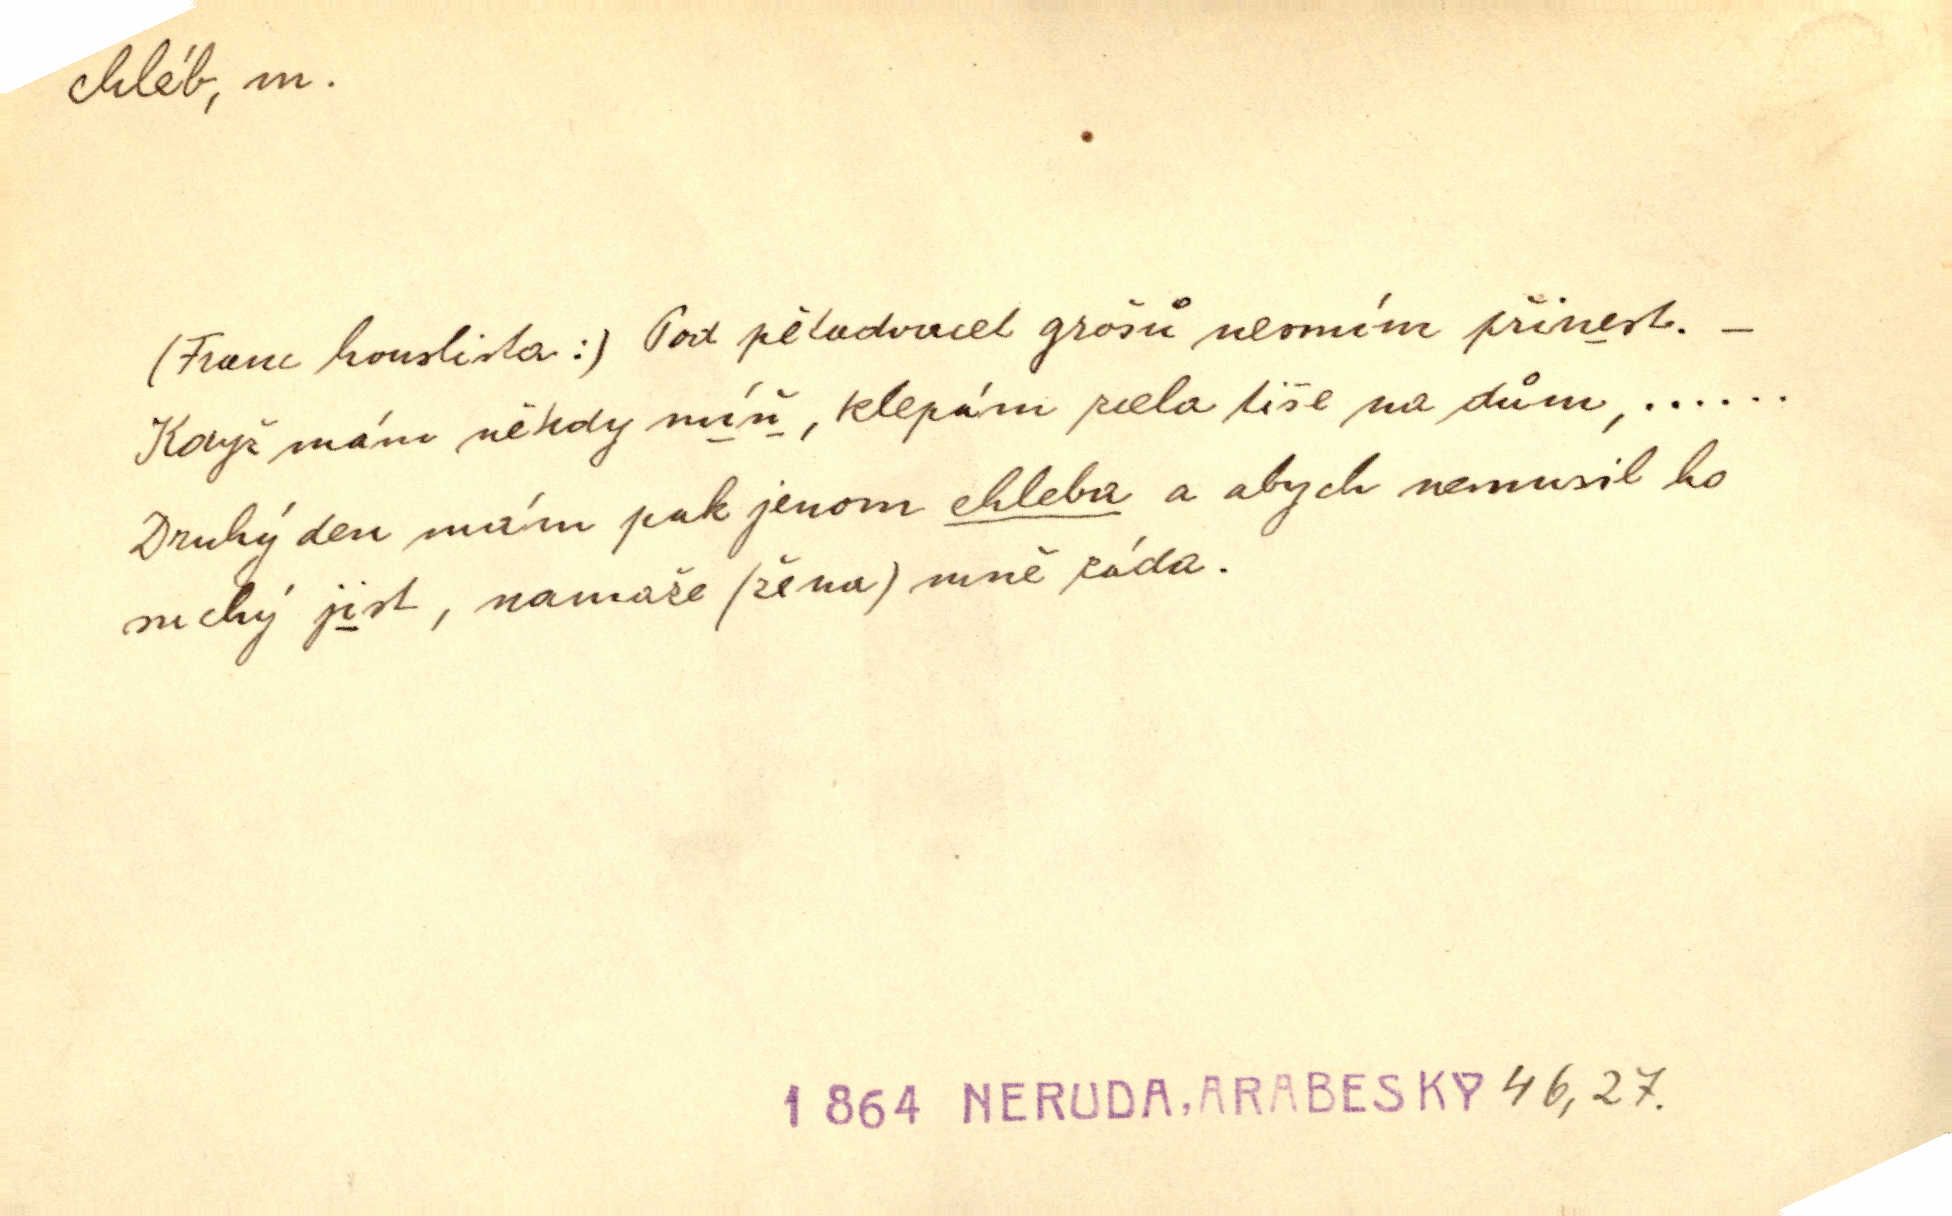 chléb, m.
(Franc houslista:) Pod pětadvacet grošů nesmím přinest. –
Když mám někdy míň, klepám zcela tiše na dům, ......
Druhý den mám pak jenom chleba a abych nemusil ho
suchý jist, namaže (žena) mně ráda.
1864 NERUDA, ARABESKY 46,27.